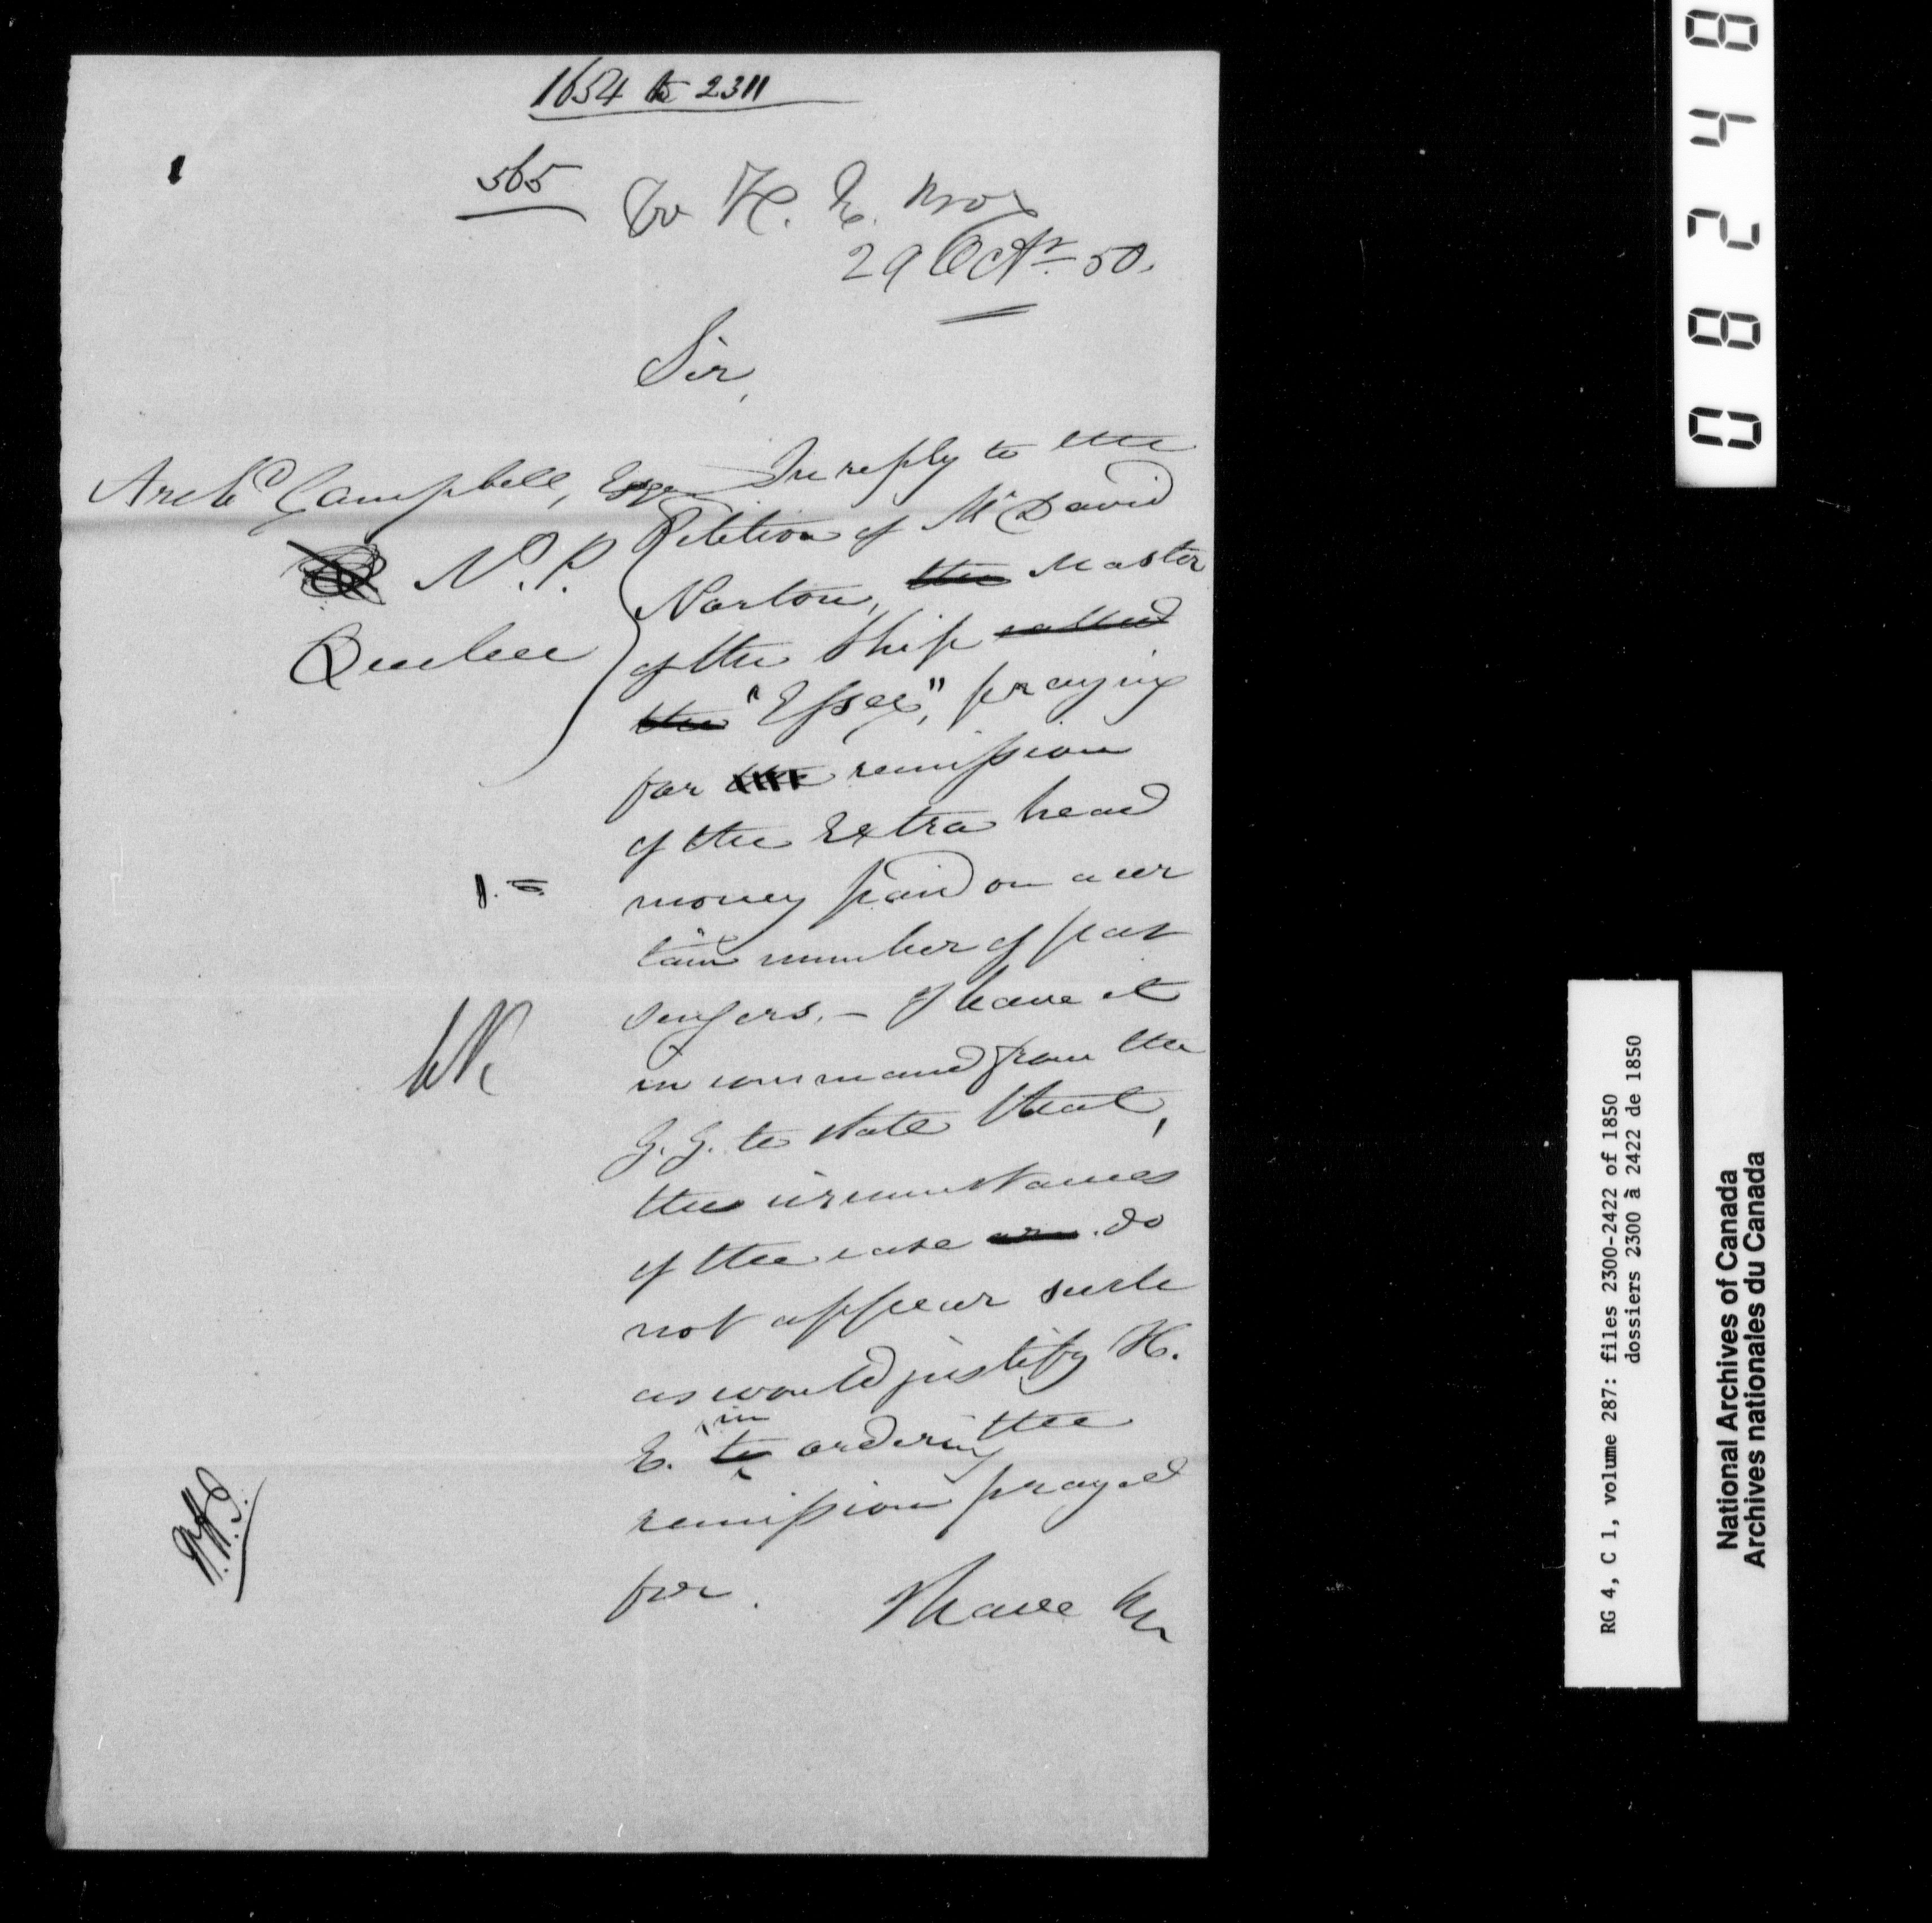 1654 to 2311
565
29 Octr. 50.
Sir,
Archd Campbell, Esqr
N.P.
Quebec
In reply to the
Petition of Mr David
Norton, the Master
of the Ship called
the "Essex", praying
for the remission
of the Extra head
money paid on a cer
tain number of pas
sengers. — I have it
in command from the
G. G. to state that,
the circumstances
of the case are do
not appear such
as would justify H.
E. to in ordering the
remission prayed
for.
I have &c
08248
RG 4, C 1, volume 287: files 2300-2422 of 1850
dossiers 2300 à 2422 de 1850
National Archives of Canada
Archives nationales du Canada